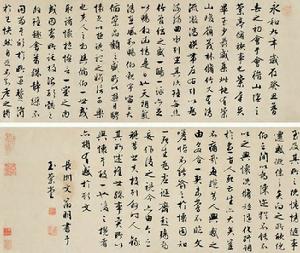 永和九年歲在癸丑暮
春之初會于會稽山陰之
蘭亭脩禊事也羣賢畢
至少長咸集此地有崇
山峻領茂林脩竹又有清
流激湍映帶左右引以為流觴
曲水列坐其次雖無絲
竹管弦之盛一觴一詠亦足
以暢敘幽情是日也天朗氣
清惠風和暢仰觀宇宙之大俯察
品類之盛
也夫人之相與俯仰一世或
取諸懷抱悟言一室之內
或因寄所託放浪形骸之外雖
趣舍萬殊靜躁不
同當其欣於所遇暫得
於己快然自足不知老之將
至及其所之既惓情隨事
遷感慨係之矣向之所欣俛
仰之間以為陳迹猶不能不
以之興懷況脩短隨化終期
於盡古人云死生亦大矣豈
不痛哉每攬昔人興感之
由若合一契未嘗不臨文
嗟悼不能喻之於懷固知
一死生為虛誕齊彭殤為
妄作後之視今亦由今之
視昔悲夫故列敘時人錄
其所述雖世殊事異所以
興懷其致一也後之攬者
亦將有感於斯文
長洲文徵明書于
玉蘭堂